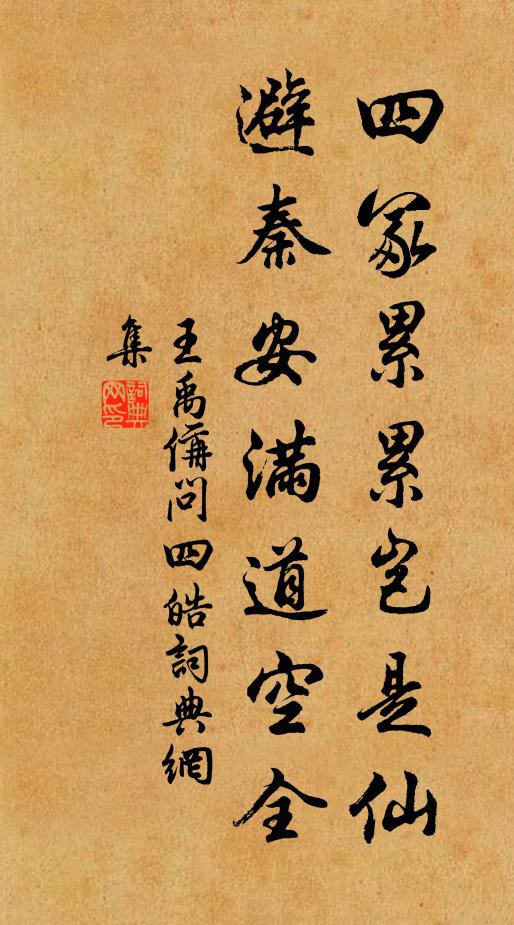 四冢累累岂是仙
避秦安满道空全
王禹偁问四皓詞典網
集
詞典網印